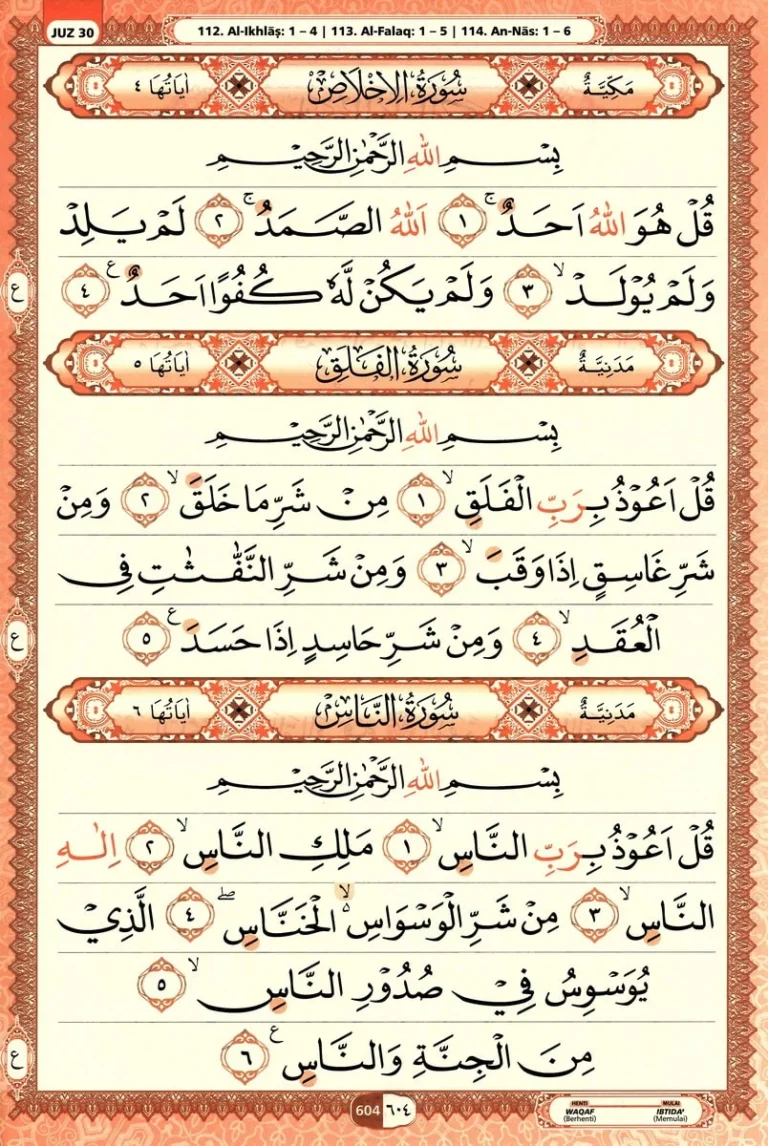 JUZ 30
112. Al-Ikhlāṣ: 1 – 4 | 113. Al-Falaq: 1 – 5 | 114. An-Nās: 1 – 6
مَكِّيَّةٌ سُوْرَةُ الْاِخْلَاصِ اٰيَاتُهَا ٤
بِسْمِ اللّٰهِ الرَّحْمٰنِ الرَّحِيْمِ
قُلْ هُوَ اللّٰهُ اَحَدٌۚ ١ اَللّٰهُ الصَّمَدُۚ ٢ لَمْ يَلِدْ
وَلَمْ يُوْلَدْۙ ٣ وَلَمْ يَكُنْ لَّهٗ كُفُوًا اَحَدٌ ࣖ ٤
ع
مَدَنِيَّةٌ سُوْرَةُ الْفَلَقِ اٰيَاتُهَا ٥
بِسْمِ اللّٰهِ الرَّحْمٰنِ الرَّحِيْمِ
قُلْ اَعُوْذُ بِرَبِّ الْفَلَقِۙ ١ مِنْ شَرِّ مَا خَلَقَۙ ٢ وَمِنْ
شَرِّ غَاسِقٍ اِذَا وَقَبَۙ ٣ وَمِنْ شَرِّ النَّفّٰثٰتِ فِى
الْعُقَدِۙ ٤ وَمِنْ شَرِّ حَاسِدٍ اِذَا حَسَدَ ࣖ ٥
ع
مَدَنِيَّةٌ سُوْرَةُ النَّاسِ اٰيَاتُهَا ٦
بِسْمِ اللّٰهِ الرَّحْمٰنِ الرَّحِيْمِ
قُلْ اَعُوْذُ بِرَبِّ النَّاسِۙ ١ مَلِكِ النَّاسِۙ ٢ اِلٰهِ
النَّاسِۙ ٣ مِنْ شَرِّ الْوَسْوَاسِ ەۙ الْخَنَّاسِۖ ٤ الَّذِيْ
يُوَسْوِسُ فِيْ صُدُوْرِ النَّاسِۙ ٥
مِنَ الْجِنَّةِ وَالنَّاسِ ࣖ ٦
ع
604 ٦٠٤
HENTI
WAQAF
(Berhenti)
MULAI
IBTIDA'
(Memulai)